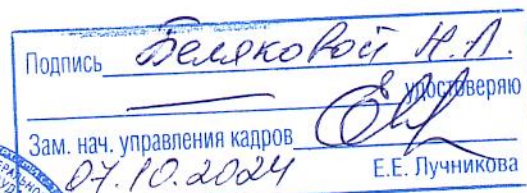 Подпись Беляковой Н.Л.
удостоверяю
Зам. нач. управления кадров
07.10.2024 Е.Е. Лучникова